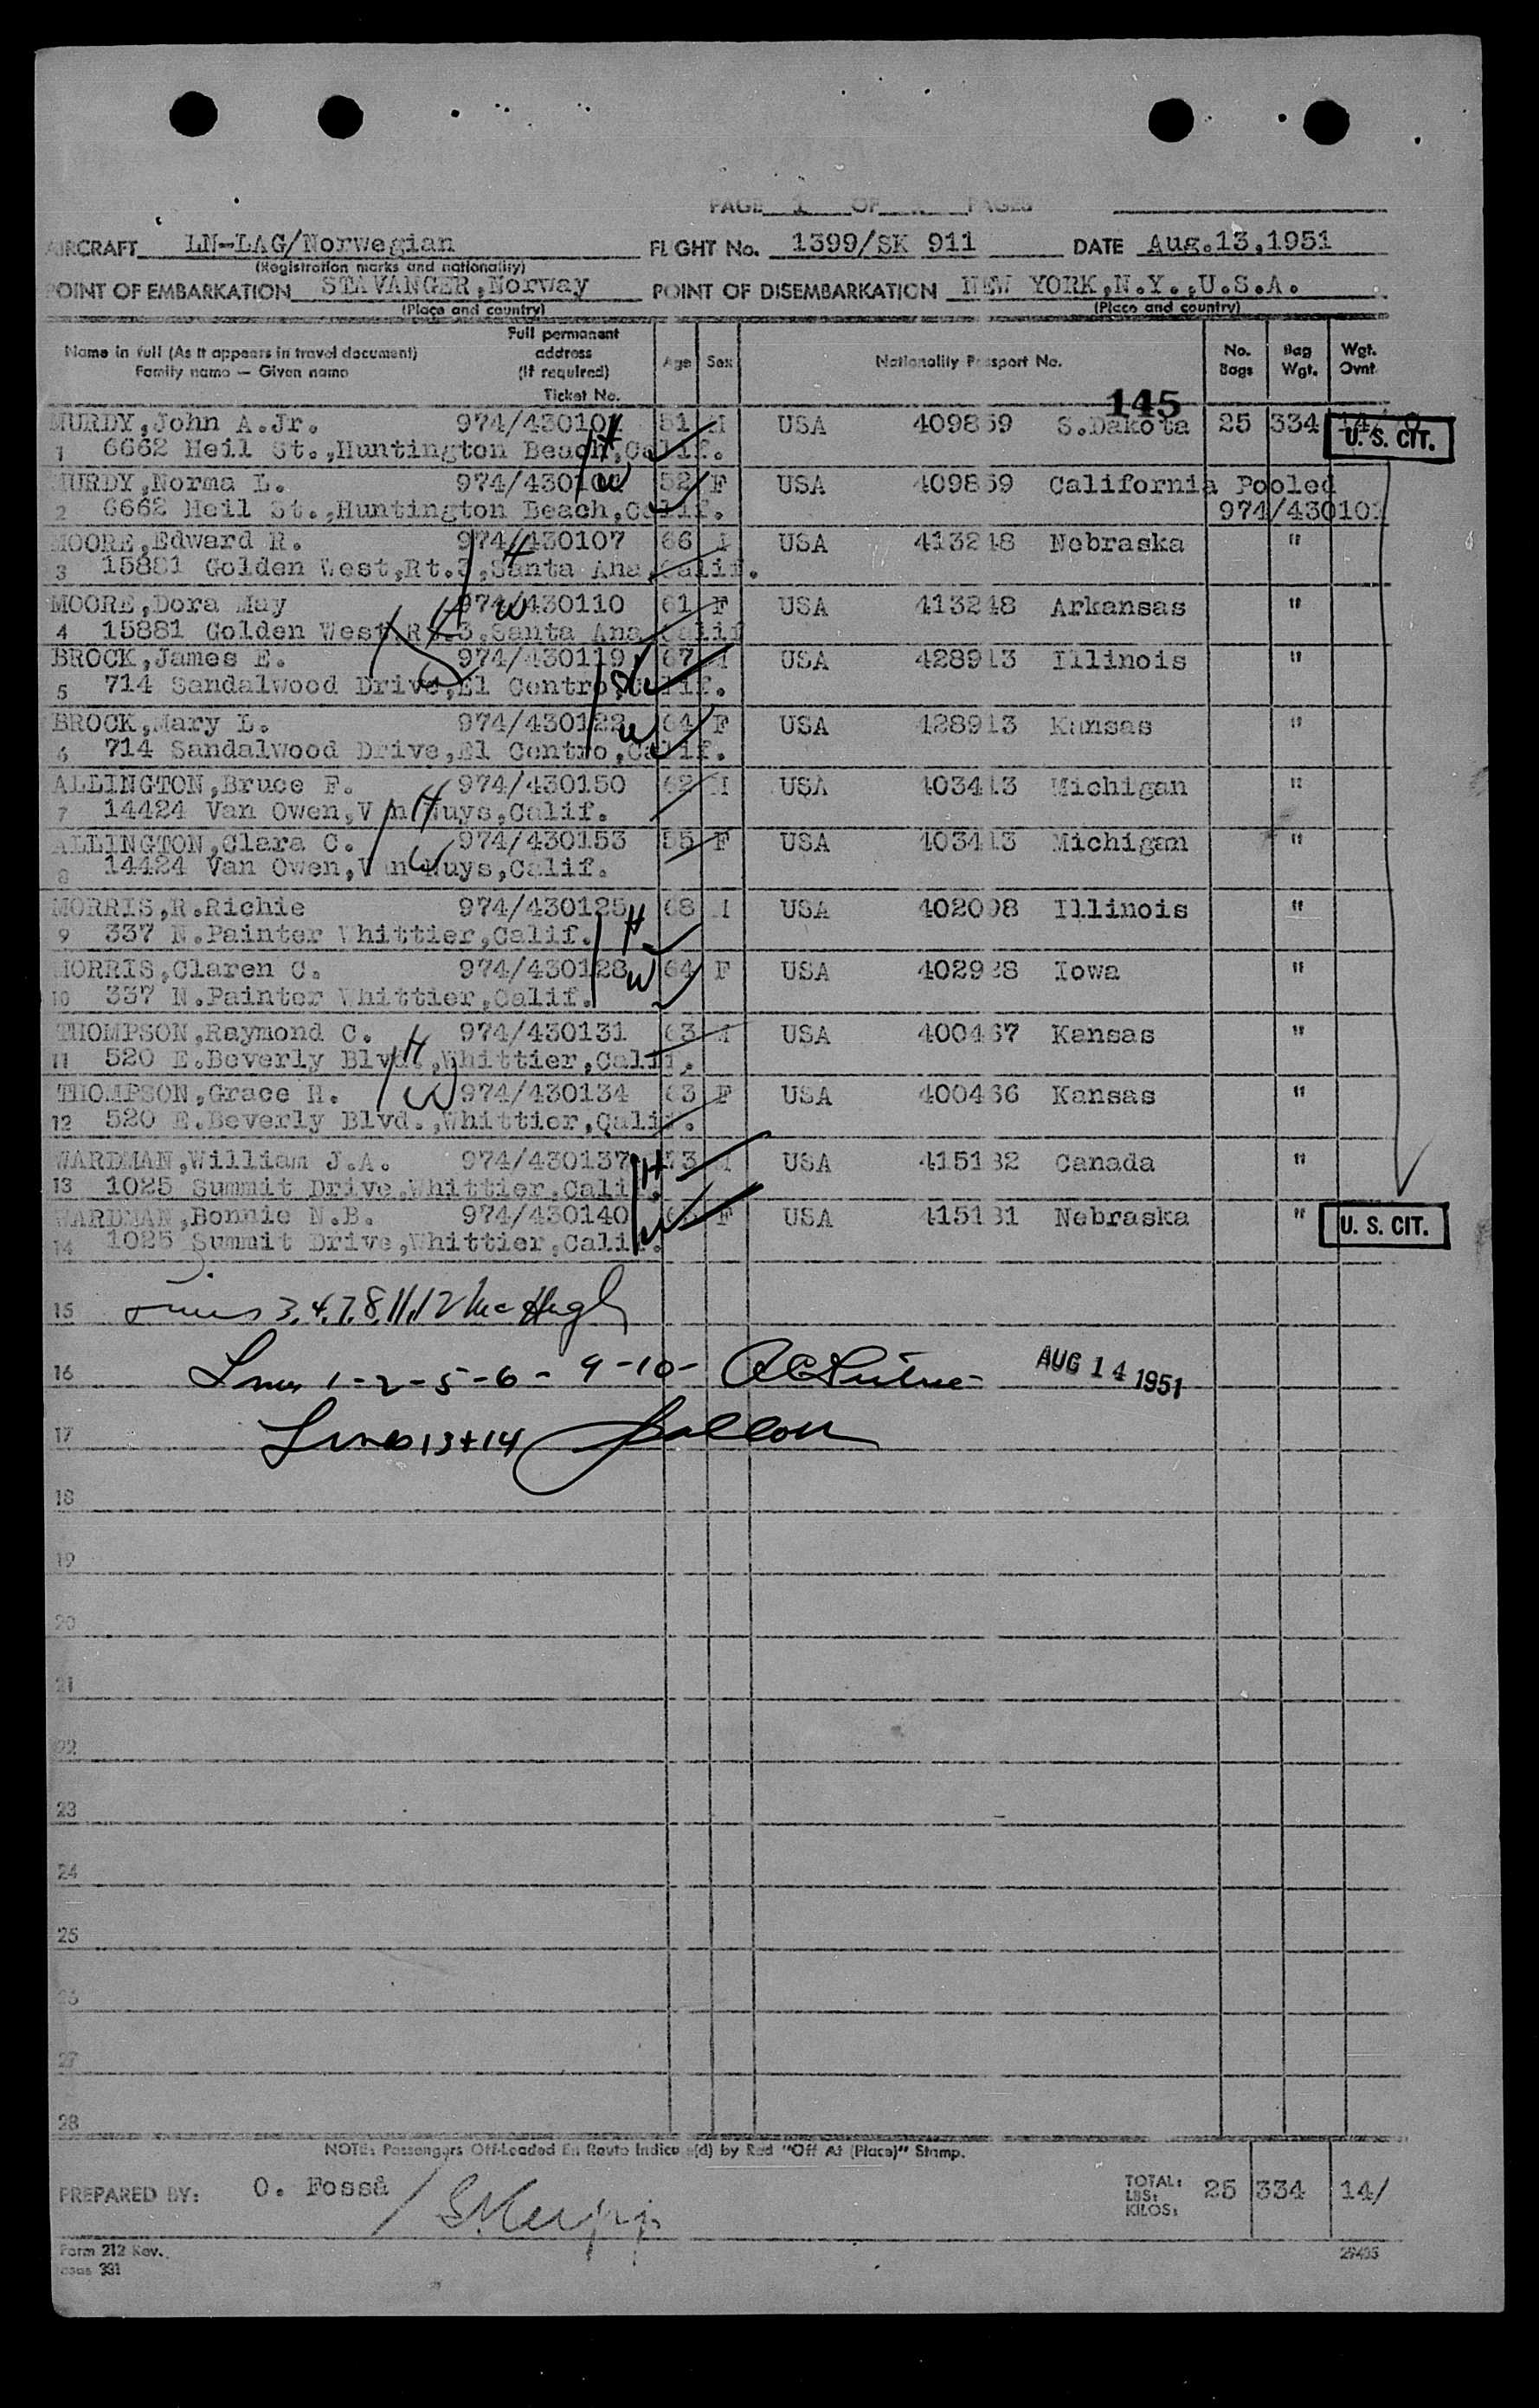 PAGE 1 OF PAGES
AIRCRAFT LN-LAG/Norwegian FLIGHT No. 1399/SK 911 DATE Aug.13,1951
(Registration marks and nationality)
POINT OF EMBARKATION STAVANGER,Norway POINT OF DISEMBARKATION NEW YORK,N.Y.,U.S.A.
(Place and country) (Place and country)
Name in full (As it appears in travel document) Family name — Given name Full permanent address (If required) Ticket No. Age Sex Nationality Passport No. No. Bags Bag Wgt. Wgt. Ovnt.
145
MURDY,John A.Jr. 51 M USA S.Dakota 25 334 14/ U. S. CIT.
1 6662 Heil St.,Huntington Beach,Calif. H
MURDY,Norma L. 52 F USA California Pooled
2 6662 Heil St.,Huntington Beach,Calif. W
MOORE,Edward R. 974/430107 66 M USA 413248 Nebraska "
3 15881 Golden West,Rt.3,Santa Ana,Calif. H
MOORE,Dora May 974/430110 61 F USA 413248 Arkansas "
4 15881 Golden West,Rt.3,Santa Ana,Calif W
BROCK,James E. 974/430119 67 M USA 428913 Illinois "
5 714 Sandalwood Drive,El Centro,Calif. H
BROCK,Mary L. 974/430122 64 F USA 428913 Kansas "
6 714 Sandalwood Drive,El Centro,Calif. W
ALLINGTON,Bruce F. 974/430150 62 M USA 403413 Michigan "
7 14424 Van Owen,Van Nuys,Calif. H
ALLINGTON,Clara C. 974/430153 55 F USA 403413 Michigan "
8 14424 Van Owen,Van Nuys,Calif. W
MORRIS,R.Richie 974/430125 68 M USA Illinois "
9 337 N.Painter Whittier,Calif. H
MORRIS,Claren C. 974/430128 64 F USA Iowa "
10 337 N.Painter Whittier,Calif. W
THOMPSON,Raymond C. 974/430131 63 M USA 400467 Kansas "
11 520 E.Beverly Blvd.,Whittier,Calif. H
THOMPSON,Grace H. 974/430134 63 F USA 400466 Kansas "
12 520 E.Beverly Blvd.,Whittier,Calif. W
WARDMAN,William J.A. 974/430137 73 M USA 415132 Canada "
13 1025 Summit Drive,Whittier,Calif. H
WARDMAN,Bonnie N.B. 974/430140 F USA 415131 Nebraska " U. S. CIT.
14 1025 Summit Drive,Whittier,Calif. W
15 Lines 3,4,7,8,11,12 McHugh
16 Lines 1-2-5-6-9-10- AUG 14 1951
17 Lines 13+14
18
19
20
21
22
23
24
25
26
27
28
NOTE: Passengers Off-Loaded En Route Indicate(d) by Red "Off At (Place)" Stamp.
PREPARED BY: O. Fosså / TOTAL: LBS: KILOS: 25 334 14/
Form 212 Rev.
331